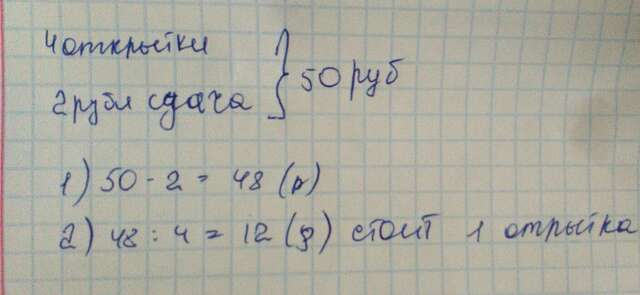 4 открытки
2 рубля сдача } 50 руб
1) 50 - 2 = 48 (р)
2) 48 : 4 = 12 (р) стоит 1 отрытка